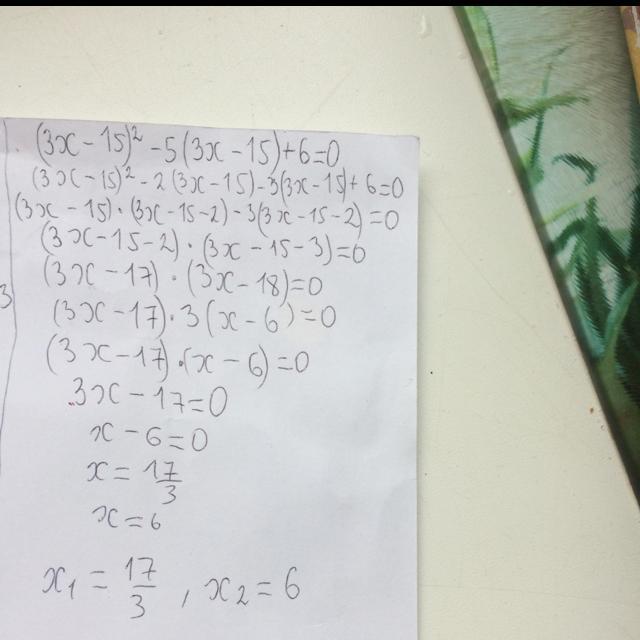 (3x-15)² -5(3x-15)+6=0
(3x-15)² -2(3x-15)-3(3x-15)+6=0
(3x-15)·(3x-15-2)-3(3x-15-2)=0
(3x-15-2)·(3x-15-3)=0
(3x-17)·(3x-18)=0
3
(3x-17)·3(x-6)=0
(3x-17)·(x-6)=0
3x-17=0
x-6=0
x=17/3
x=6
x₁=17/3, x₂=6